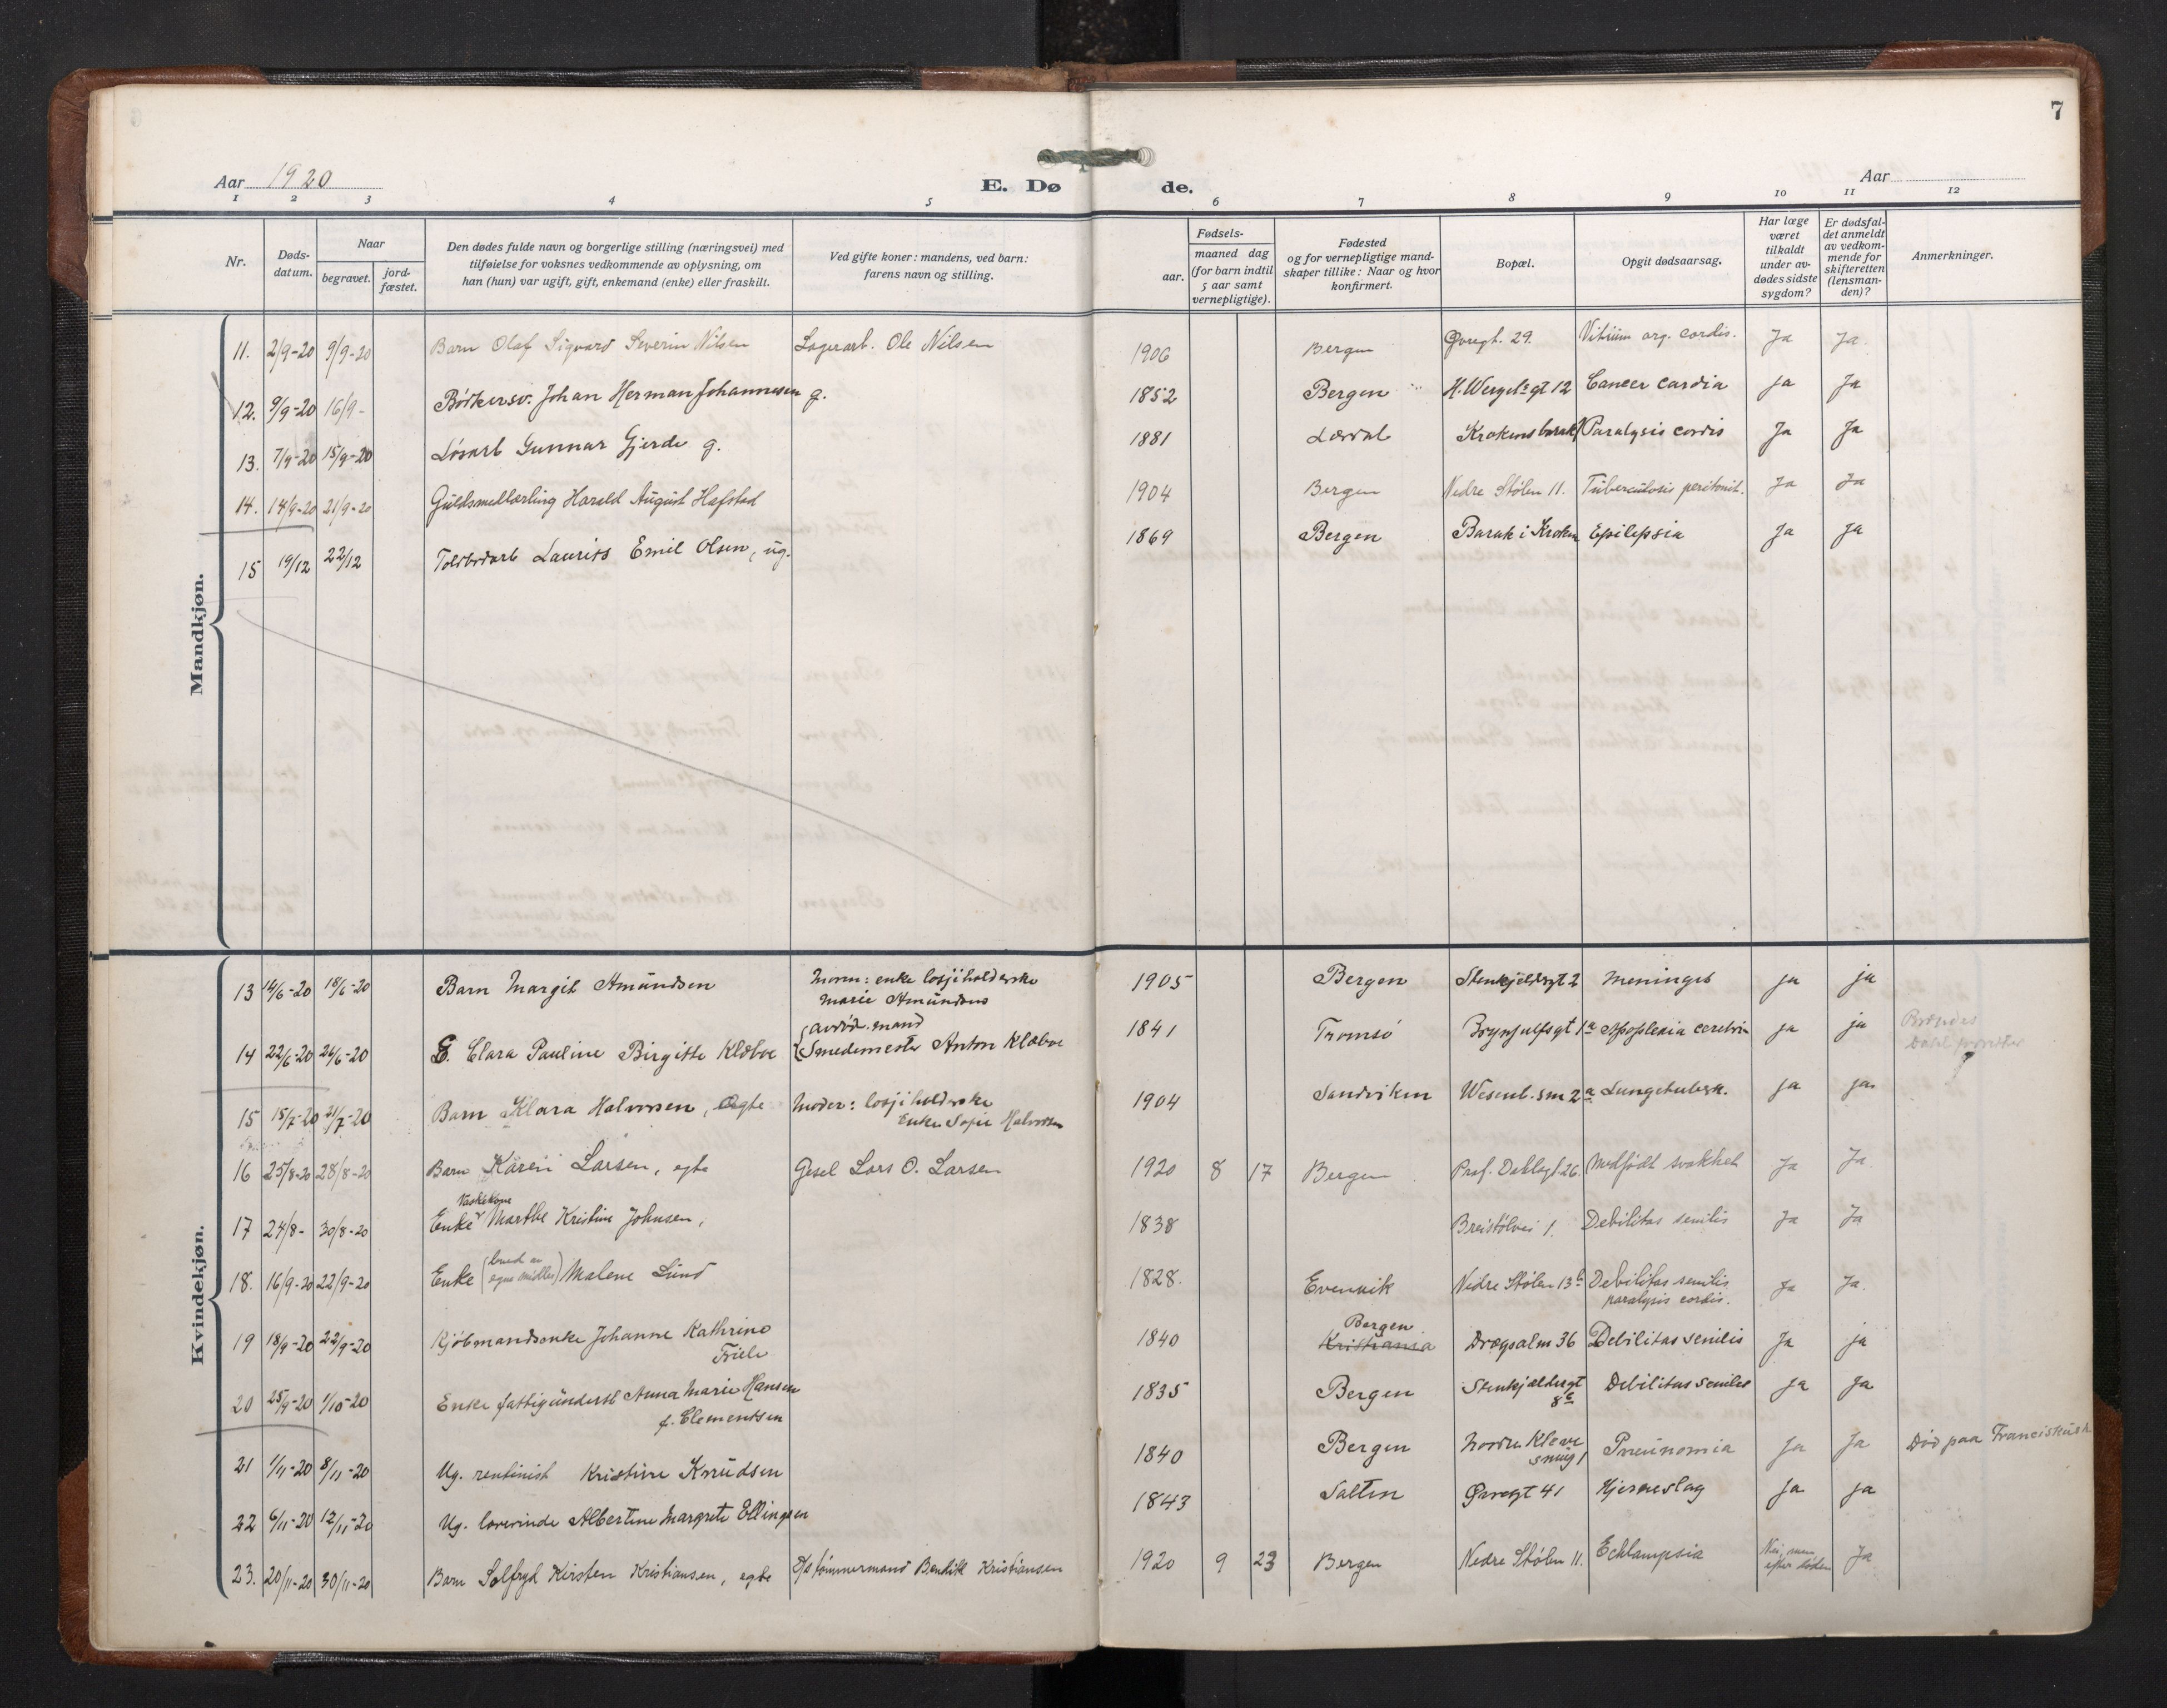 7
Aar 1920
E. Dø de.
Aar
1 2 3 4 5 6 7 8 9 10 11 12
Nr.
Døds-
datum.
Naar
begravet.
jord-
fæstet.
Den dødes fulde navn og borgerlige stilling (næringsvei) med
tilføielse for voksnes vedkommende av oplysning, om
han (hun) var ugift, gift, enkemand (enke) eller fraskilt.
Ved gifte koner: mandens, ved barn:
farens navn og stilling.
Fødsels-
aar.
maaned dag
(for barn indtil
5 aar samt
vernepligtige).
Fødested
og for vernepligtige mand-
skaper tillike: Naar og hvor
konfirmert.
Bopæl.
Opgit dødsaarsag.
Har læge
været
tilkaldt
under av-
dødes sidste
sygdom?
Er dødsfal-
det anmeldt
av vedkom-
mende for
skifteretten
(lensman-
den)?
Anmerkninger.
Mandkjøn.
11. 2/9-20 9/9-20 Barn Olaf Sigvard Severin Nilsen Lagerarb. Ole Nilsen 1906 Bergen Øvregt. 29. Vitium org. cordis. Ja Ja.
12. 9/9-20 16/9- Bødkersv. Johan Herman Johannesen g. 1852 Bergen H. Wergelsgt 12 Cancer cardia Ja Ja
13. 7/9-20 15/9-20 Løsarb Gunnar Gjerde g. 1881 Lærdal Krokens barak Paralysis cordis Ja Ja
14. 14/9-20 21/9-20 Guldsmedlærling Harald August Hafstad 1904 Bergen Nedre Stølen 11. Tuberculosis peritonit. Ja Ja
15 19/12 22/12 Toldbodarb Laurits Emil Olsen, ug. 1869 Bergen Barak i Kroken Epilepsia Ja Ja
Kvindekjøn.
13 14/6-20 18/6-20 Barn Margit Amundsen Moren: enke losjiholderske
Marie Amundsen 1905 Bergen Stenkjeldergt 2 Meningit ja ja
14 22/6-20 26/6-20 E. Clara Pauline Birgitte Klæboe Avdød mand
Smedemester Anton Klæboe 1841 Tromsø Brynjulfsgt 1a Apoplexia cerebri ja ja
15 15/7-20 21/7-20 Barn Klara Halvorsen, Ægte Moder: losjiholderske
Enke Sofie Halvorsen 1904 Sandviken Wesenb. sm 2a Lungetuberk. ja ja
16 25/8-20 28/8-20 Barn Karen Larsen, egte Gesel Lars O. Larsen 1920 8 17 Bergen Prof. Dahlsgt. 26. Medfødt svakhet Ja Ja.
Vaskekone
17 24/8- 30/8-20 Enke Marthe Kristine Johnsen, 1838 Breistølvei 1. Debilitas senilis Ja Ja
18. 16/9-20 22/9-20 Enke (leved av
egne midler) Malene Lund 1828. Evenvik Nedre Stølen 13b Debilitas senilis
paralysis cordis. Ja Ja.
19 18/9-20 22/9-20 Kjøbmandsenke Johanne Kathrine
Friele 1840 Bergen
Kristiania Drægsalm 36 Debilitas senilis Ja ja
20 25/9-20 1/10-20 Enke fattigunderst Anna Marie Hansen
f. Clementsen 1835 Bergen Stenkjeldergt
8c Debilitas senilis ja Ja
21 1/11-20 8/11-20 Ug. rentinist Kristine Knudsen 1840 Bergen Nordre Kleve
smug 1 Pneunomia Ja Ja Død paa Franciskush
22 6/11-20 12/11-20 Ug. lærerinde Albertine Margrete Ellingsen 1843 Salten Øvregt 41 Hjerneslag Ja ja
23. 20/11-20 30/11-20 Barn Solfryd Kirsten Kristiansen, egte tømmermand Bendik Kristiansen 1920 9 23 Bergen Nedre Stølen 11. Echlampsia Nei, men
efter døden Ja